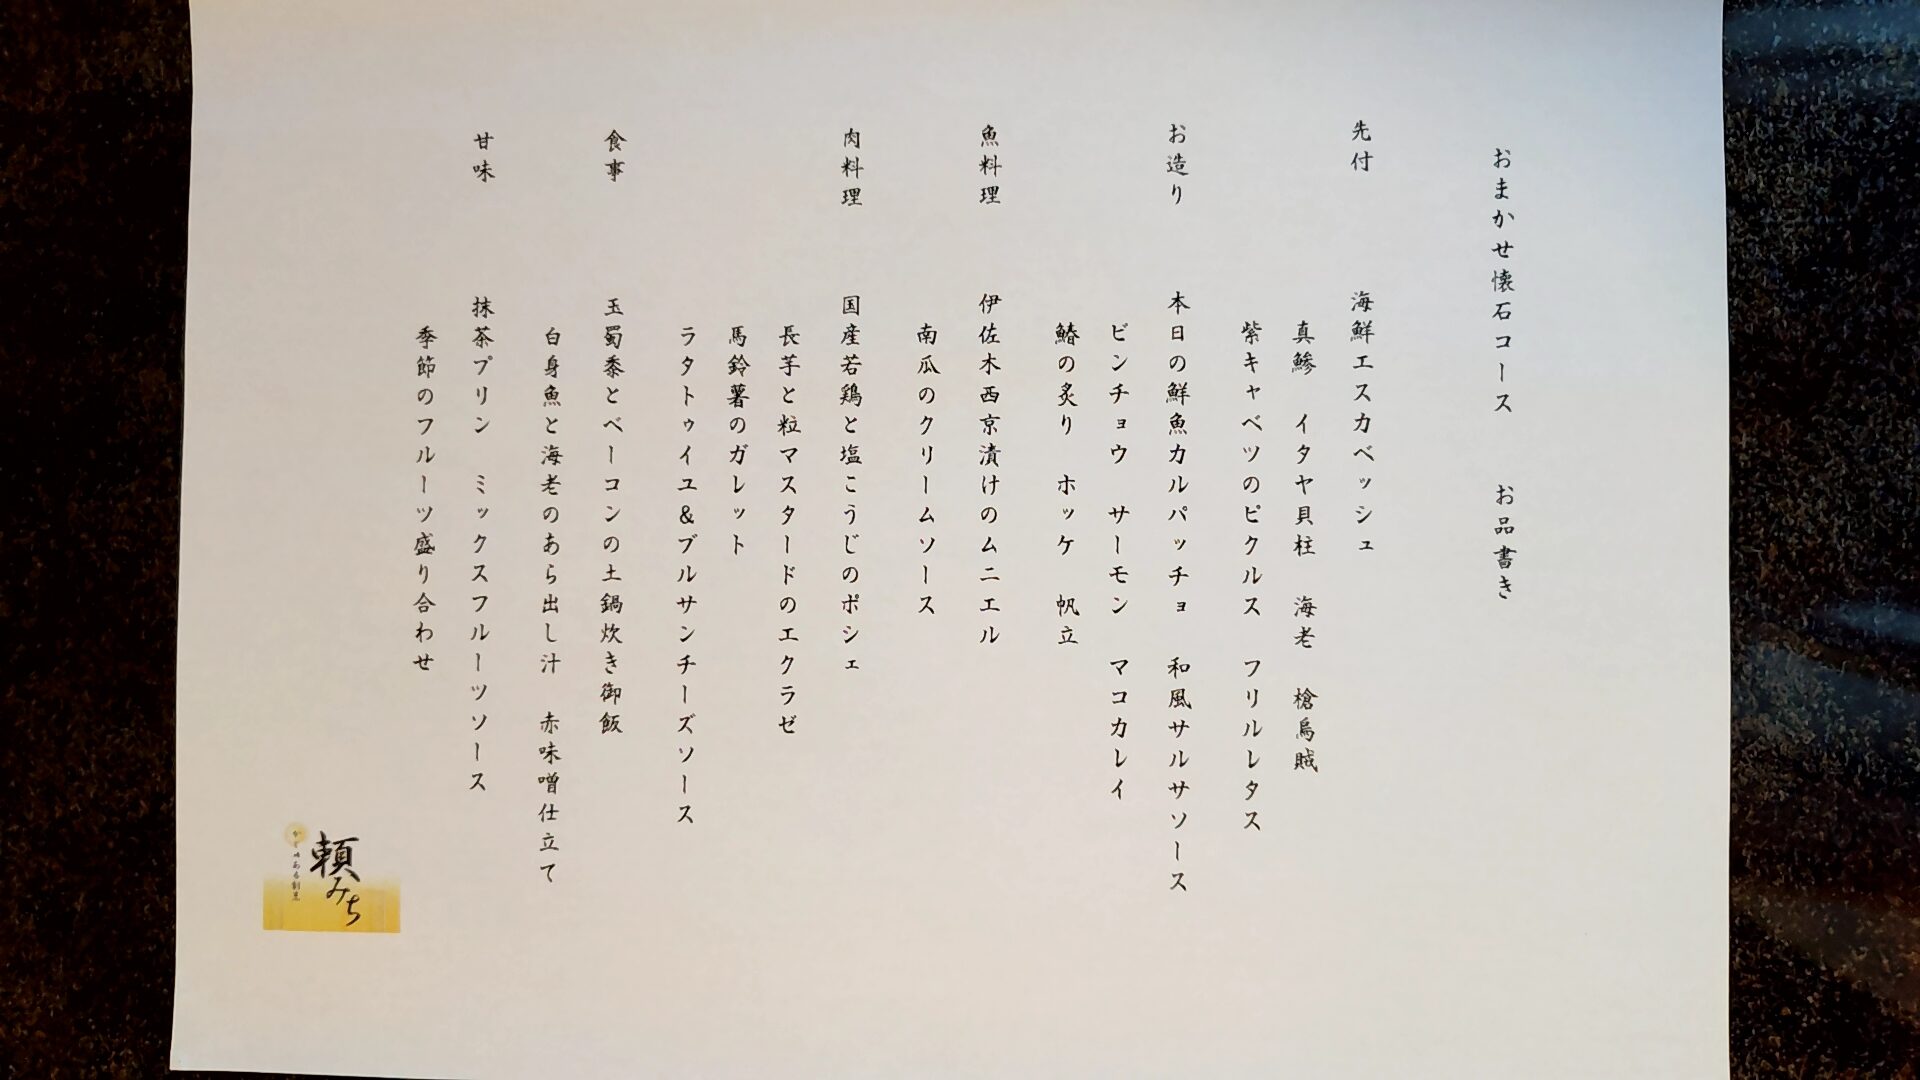 おまかせ懐石コース　お品書き
先付　海鮮エスカベッシュ
真鯵　イタヤ貝柱　海老　槍烏賊
紫キャベツのピクルス　フリルレタス
お造り　本日の鮮魚カルパッチョ　和風サルサソース
ビンチョウ　サーモン　マコカレイ
鰆の炙り　ホッケ　帆立
魚料理　伊佐木西京漬けのムニエル
南瓜のクリームソース
肉料理　国産若鶏と塩こうじのポシェ
長芋と粒マスタードのエクラゼ
馬鈴薯のガレット
ラタトゥイユ&ブルサンチーズソース
食事　玉蜀黍とベーコンの土鍋炊き御飯
白身魚と海老のあら出し汁　赤味噌仕立て
甘味　抹茶プリン　ミックスフルーツソース
季節のフルーツ盛り合わせ
頼みち